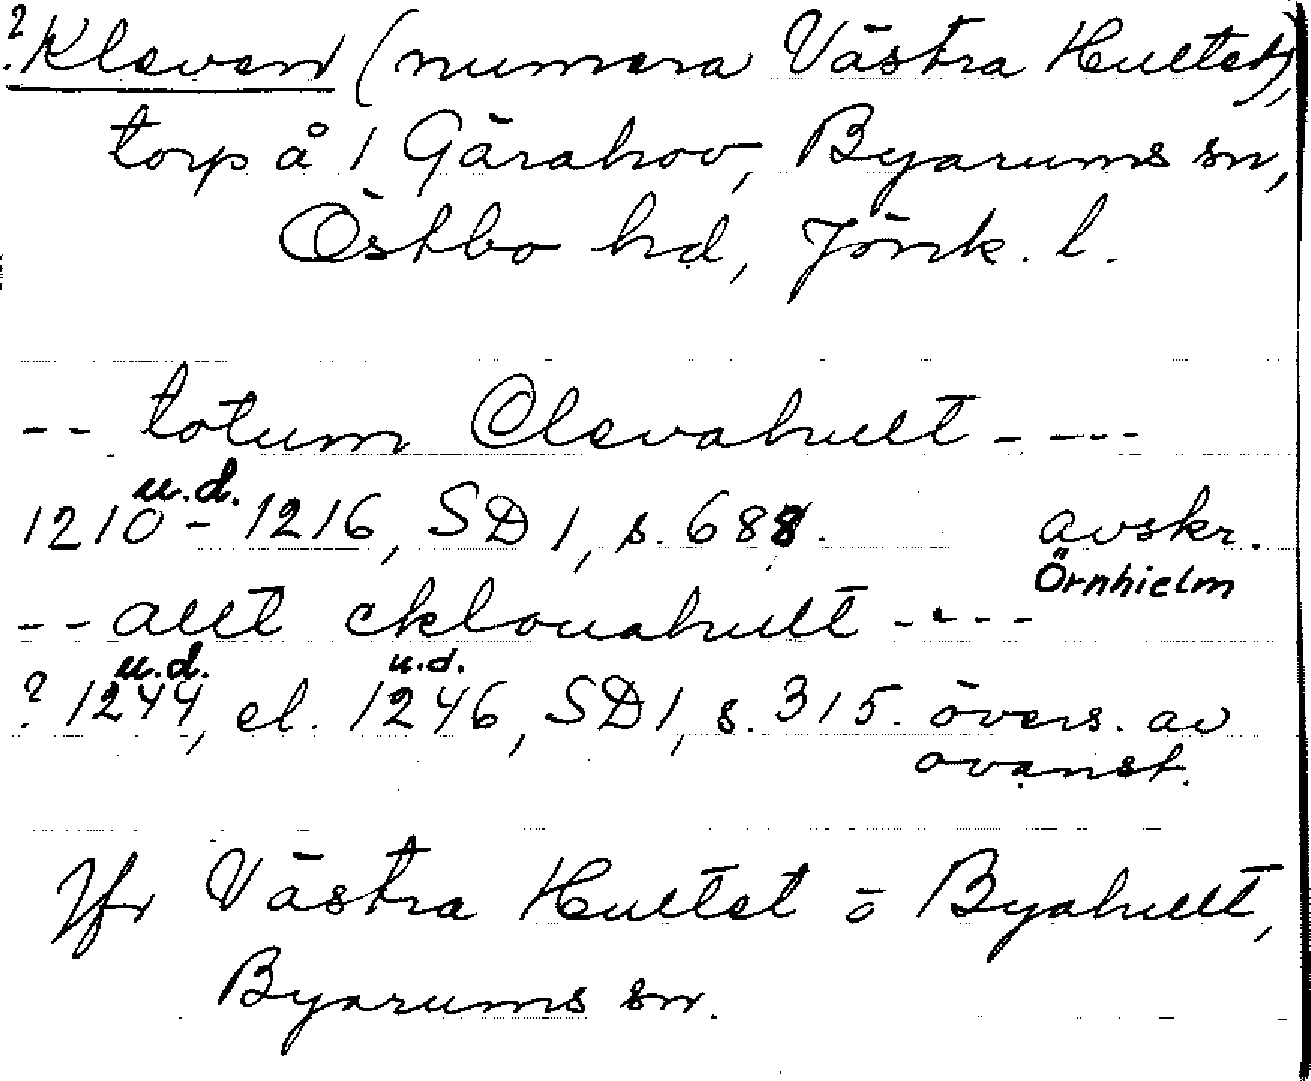 ? Kleven (numera Västra Hultet),
torp å 1 Gärahov, Byarums sn,
Östbo hd, Jönk. l.
-- totum Clevahult ----
u.d.
1210 - 1216, SD 1, s. 688. avskr.
Örnhielm
-- allt cklouahult ----
u.d. u.d.
? 1244, el. 1246, SD 1, s. 315. övers. av
ovanst.
Jfr Västra Hultet ö Byahult,
Byarums sn.